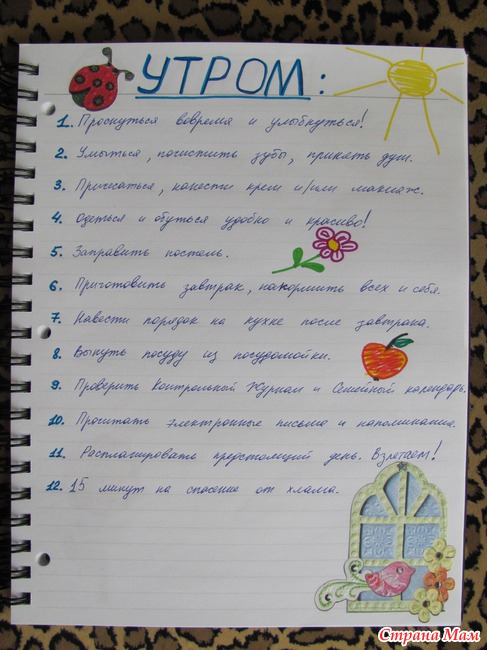 УТРОМ:
1. Проснуться вовремя и улыбнуться!
2. Умыться, почистить зубы, принять душ.
3. Причесаться, нанести крем и/или макияж.
4. Одеться и обуться удобно и красиво!
5. Заправить постель.
6. Приготовить завтрак, накормить всех и себя.
7. Навести порядок на кухне после завтрака.
8. Вынуть посуду из посудомойки.
9. Проверить Контрольный Журнал и Семейный календарь.
10. Прочитать электронные письма и напоминания.
11. Распланировать предстоящий день. Взлетаем!
12. 15 минут на спасение от хлама.
Страна Мам